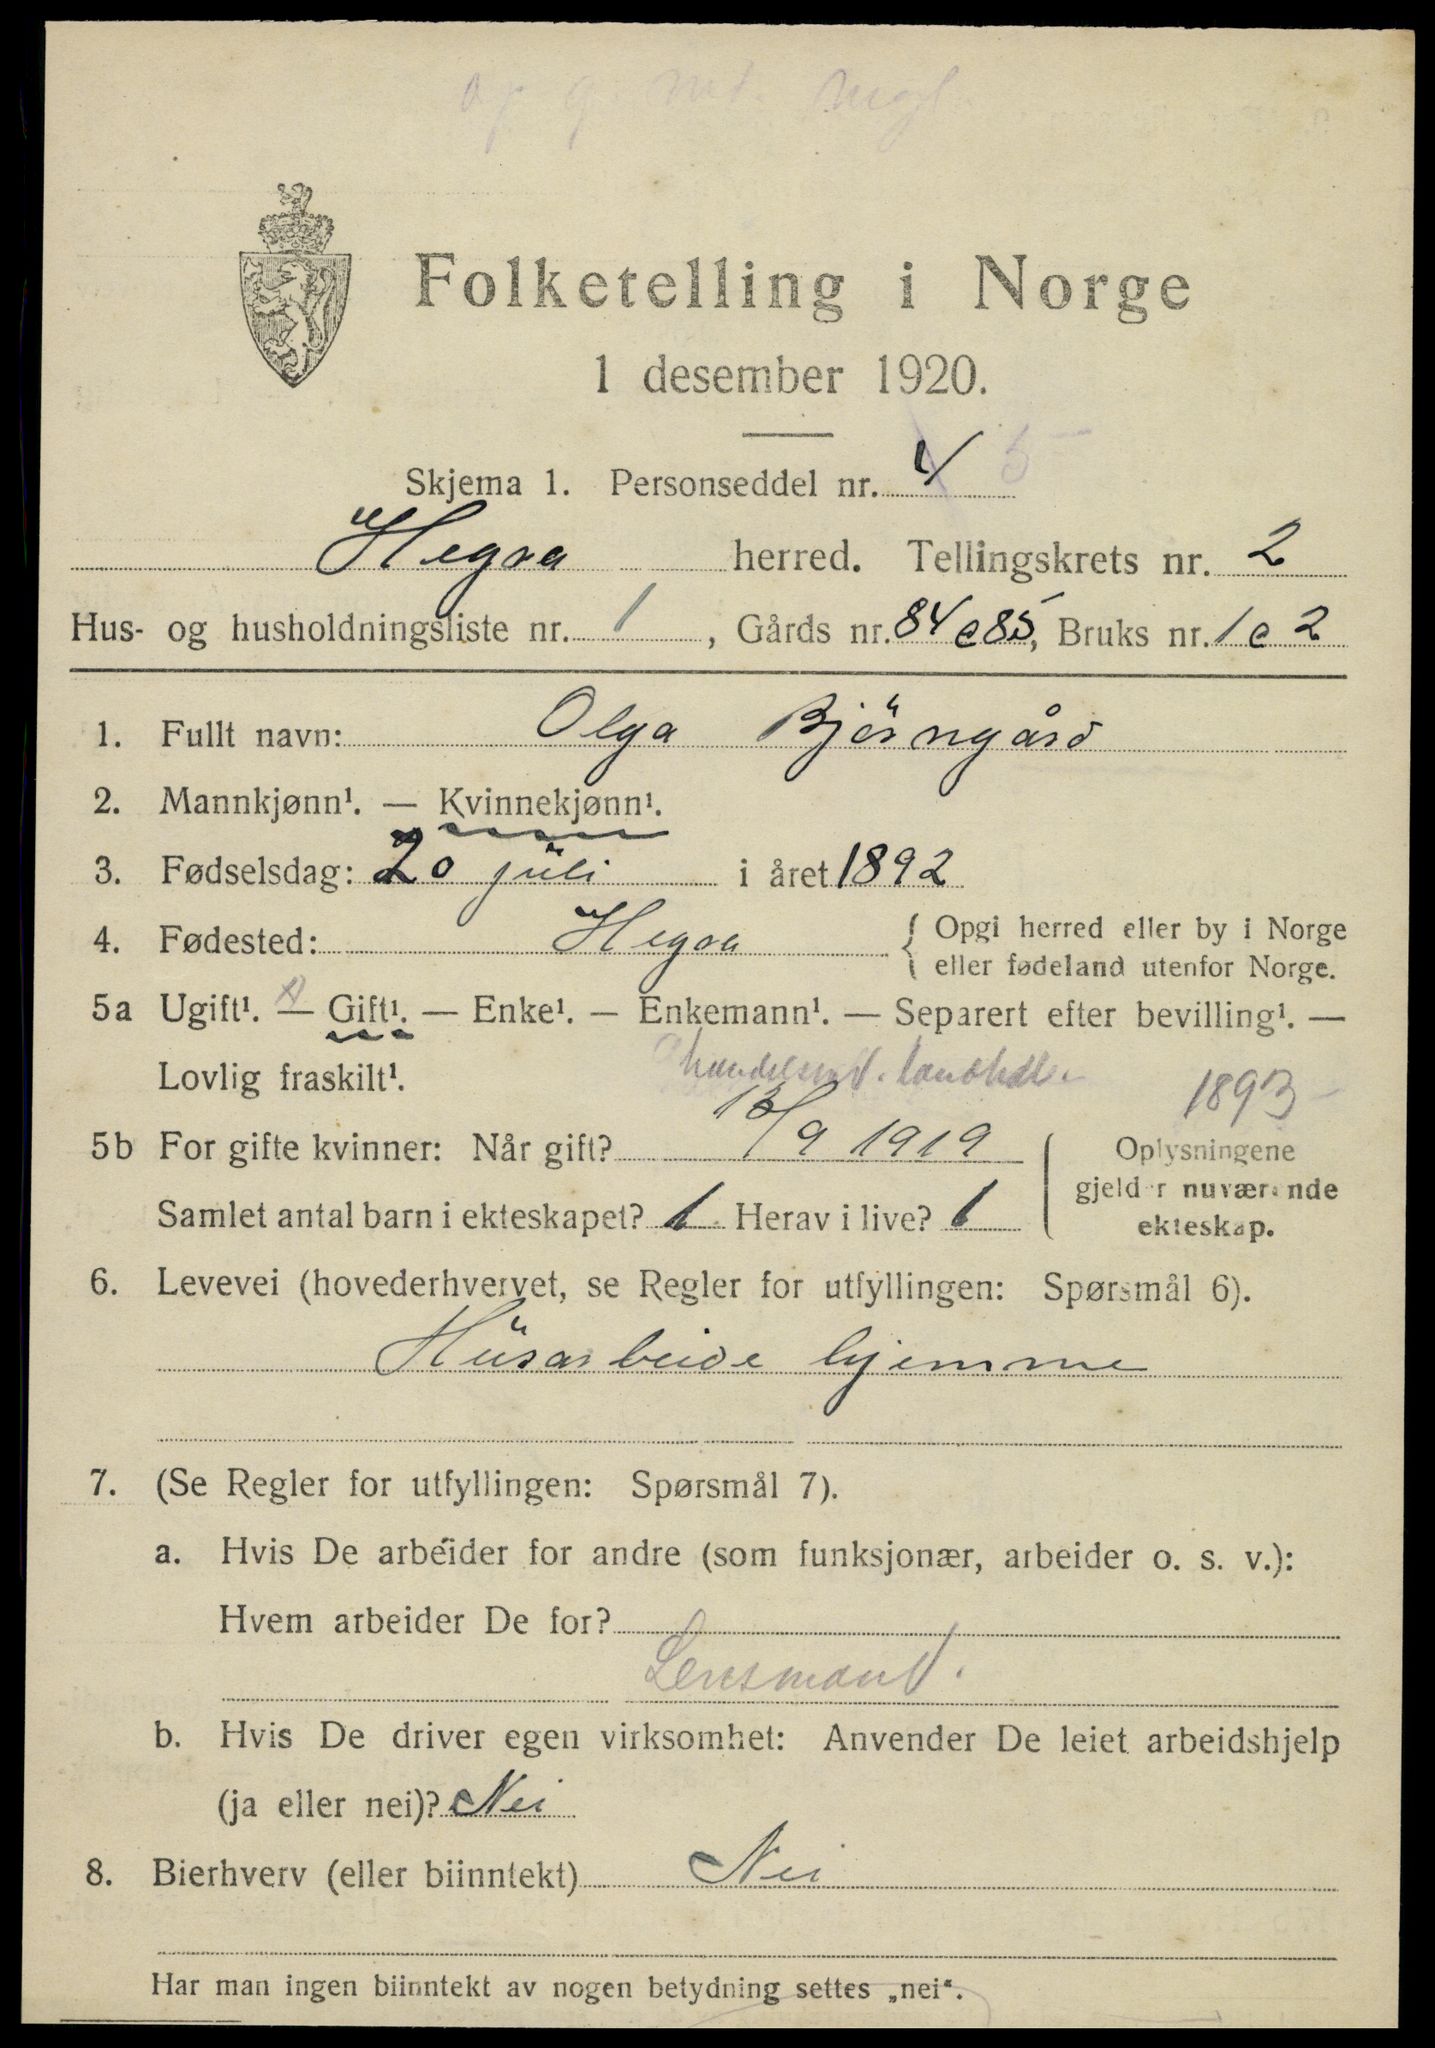 Folketelling i Norge
1 desember 1920.
Skjema 1. Personseddel nr. 4 5
Hegra herred. Tellingskrets nr. 2
Hus- og husholdningsliste nr. 1, Gårds nr. 84 e 85, Bruks nr. 1 e 2
1. Fullt navn: Olga Bjørngård
2. Mannkjønn¹. — Kvinnekjønn¹.
3. Fødselsdag: 20 juli i året 1892
4. Fødested: Hegra { Opgi herred eller by i Norge
eller fødeland utenfor Norge.
5a Ugift¹. — Gift¹. — Enke¹. — Enkemann¹. — Separert efter bevilling¹. —
Lovlig fraskilt¹.
1893
5b For gifte kvinner: Når gift? 13/9 1919
Samlet antal barn i ekteskapet? 1 Herav i live? 1
Oplysningene
gjelder nuværende
ekteskap.
6. Levevei (hovederhvervet, se Regler for utfyllingen: Spørsmål 6).
Husarbeide hjemme
7. (Se Regler for utfyllingen: Spørsmål 7).
a. Hvis De arbeider for andre (som funksjonær, arbeider o. s. v.):
Hvem arbeider De for?
b. Hvis De driver egen virksomhet: Anvender De leiet arbeidshjelp
(ja eller nei)? Nei
8. Bierhverv (eller biinntekt) Nei
Har man ingen biinntekt av nogen betydning settes „nei“.